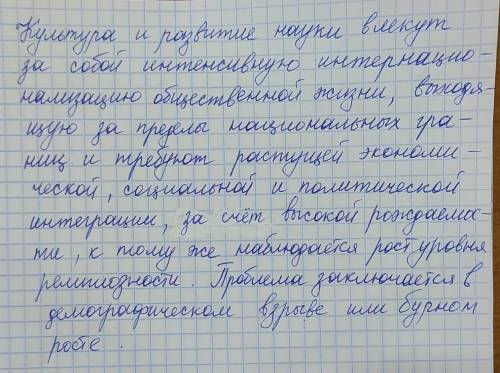 Культура и развитие науки влекут
за собой интенсивную интернацио-
нализацию общественной жизни, выходя-
щую за пределы национальных гра-
ниц и требуют растущей экономи-
ческой, социальной и политической
интеграции, за счёт высокой рождаемос-
ти, к тому же наблюдается рост уровня
религиозности. Проблема заключается в
демографическом взрыве или бурном
росте.